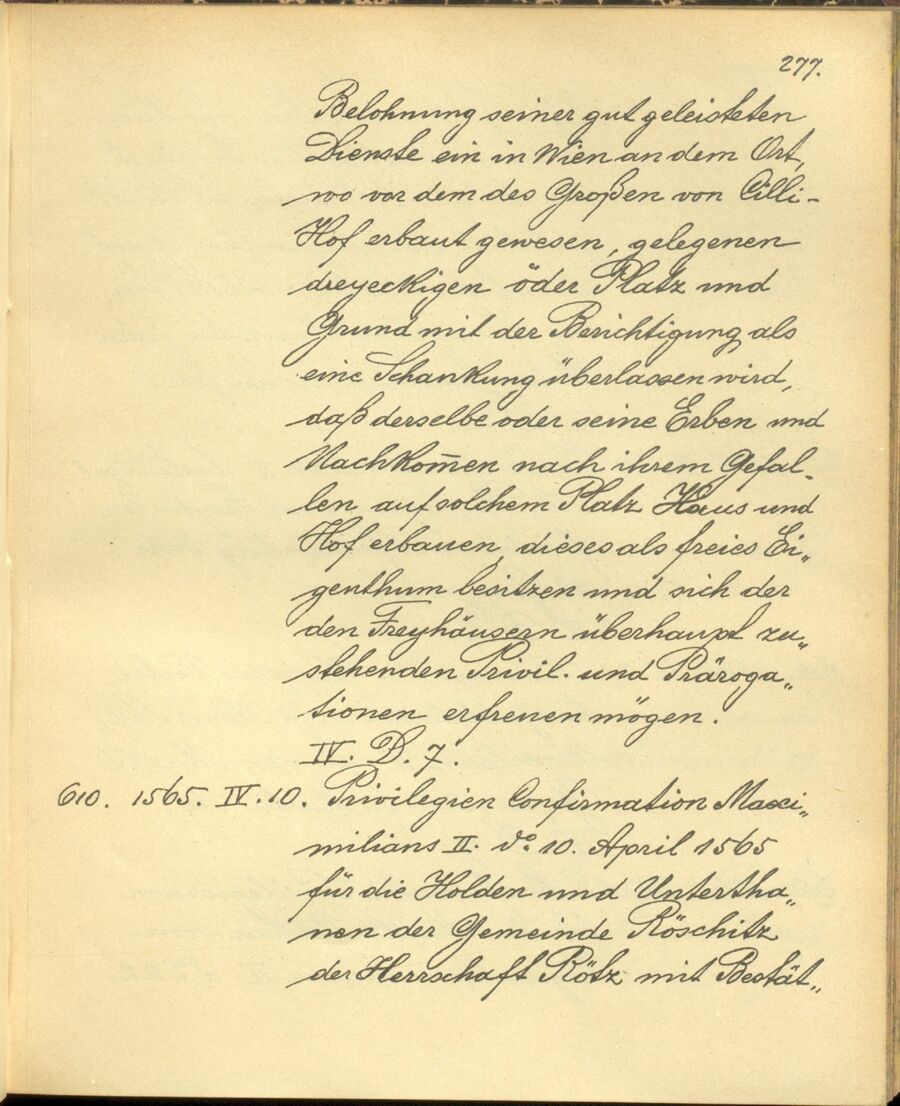 277.
Belohnung seiner gut geleisteten
Dienste ein in Wien an dem Ort,
wo vor dem des Großen von Cilli-
Hof erbaut gewesen, gelegenen
dreyeckigen öder Platz und
Grund mit der Berichtigung als
eine Schankung überlassen wird,
daß derselbe oder seine Erben und
Nachkom̅en nach ihrem Gefal-
len auf solchem Platz Haus und
Hof erbauen, dieses als freies Ei„
genthum besitzen und sich der
den Freyhäusern überhaupt zu„
stehenden Privil. und Präroga„
tionen erfreuen mögen.
IV. D. 7.
610. 1565. IV. 10. Privilegien Confirmation Maxi„
milians II. do. 10. April 1565
für die Holden und Untertha„
nen der Gemeinde Röschitz
der Herrschaft Rötz mit Bestät„